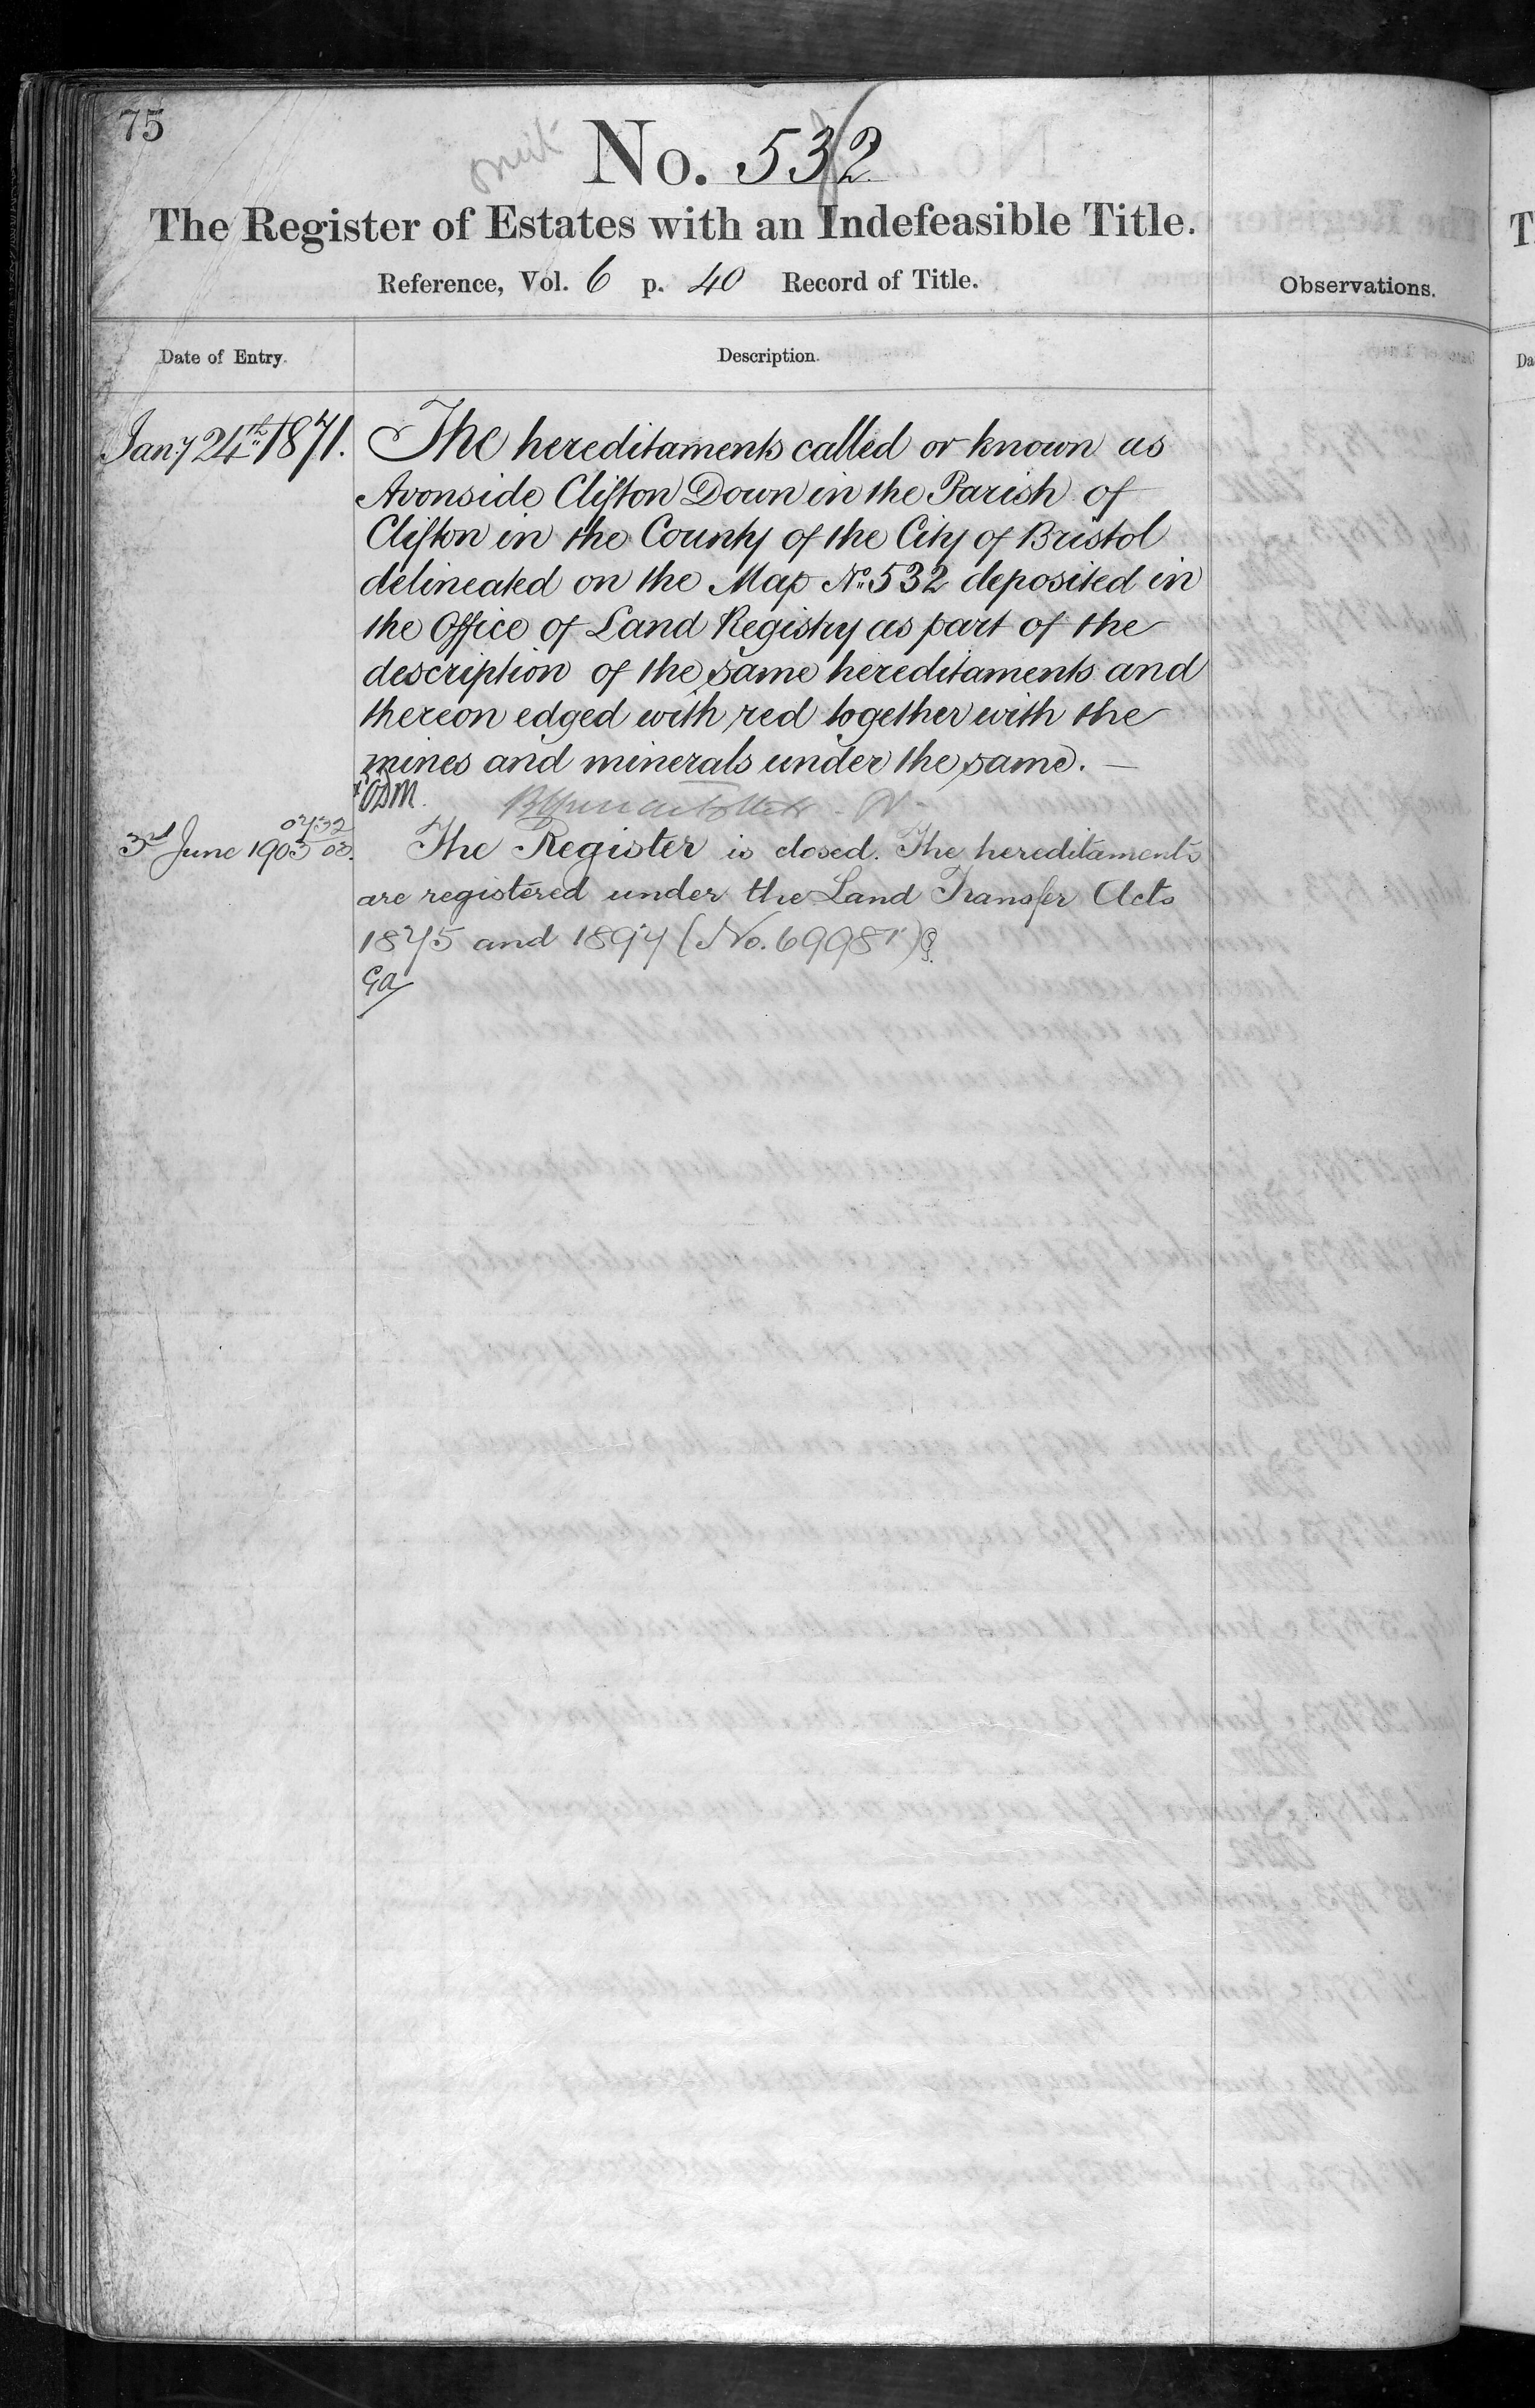 75
No. 532
The Register of Estates with an Indefeasible Title.
Reference, Vol. 6 p. 40 Record of Title.
Observations.
Date of Entry.
Description.
Jany 24th 1871.
The hereditaments called or known as
Avonside Clifton Down in the Parish of
Clifton in the County of the City of Bristol
delineated on the Map No. 532 deposited in
the Office of Land Registry as part of the
description of the same hereditaments and
thereon edged with red together with the
mines and minerals under the same. —
3rd June 1903
The Register is closed. The hereditaments
are registered under the Land Transfer Acts
1875 and 1897 (No. 69981)